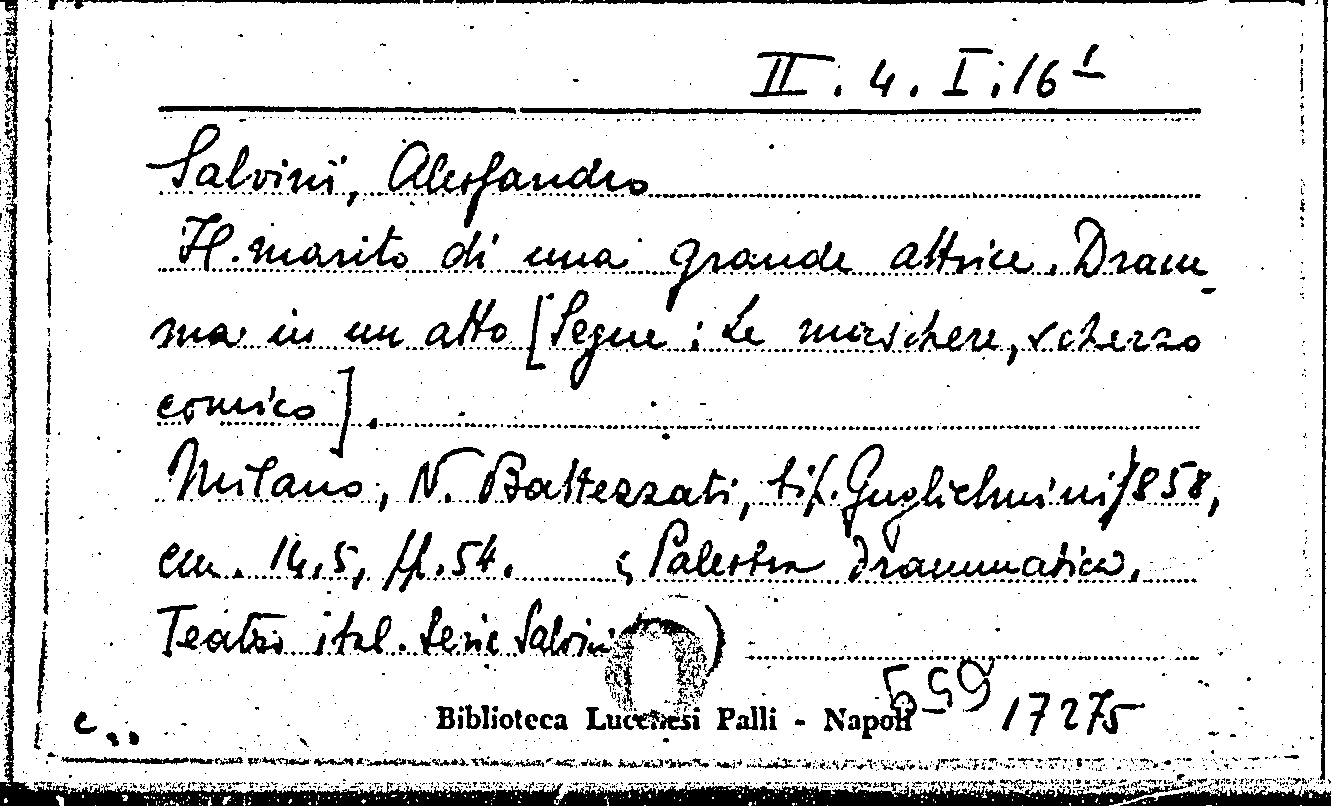 II. 4. I. 16¹
Salvini, Alessandro
Il marito di una grande attrice. Dram-
ma in un atto [Segue: Le maschere, scherzo
comico].
Milano, N. Battezzati, tip. Guglielmini, 1858,
cm. 14,5, pp. 54. (Palestra drammatica.
Teatro ital. Serie Salvini)
Biblioteca Lucchesi Palli - Napoli
559 17275